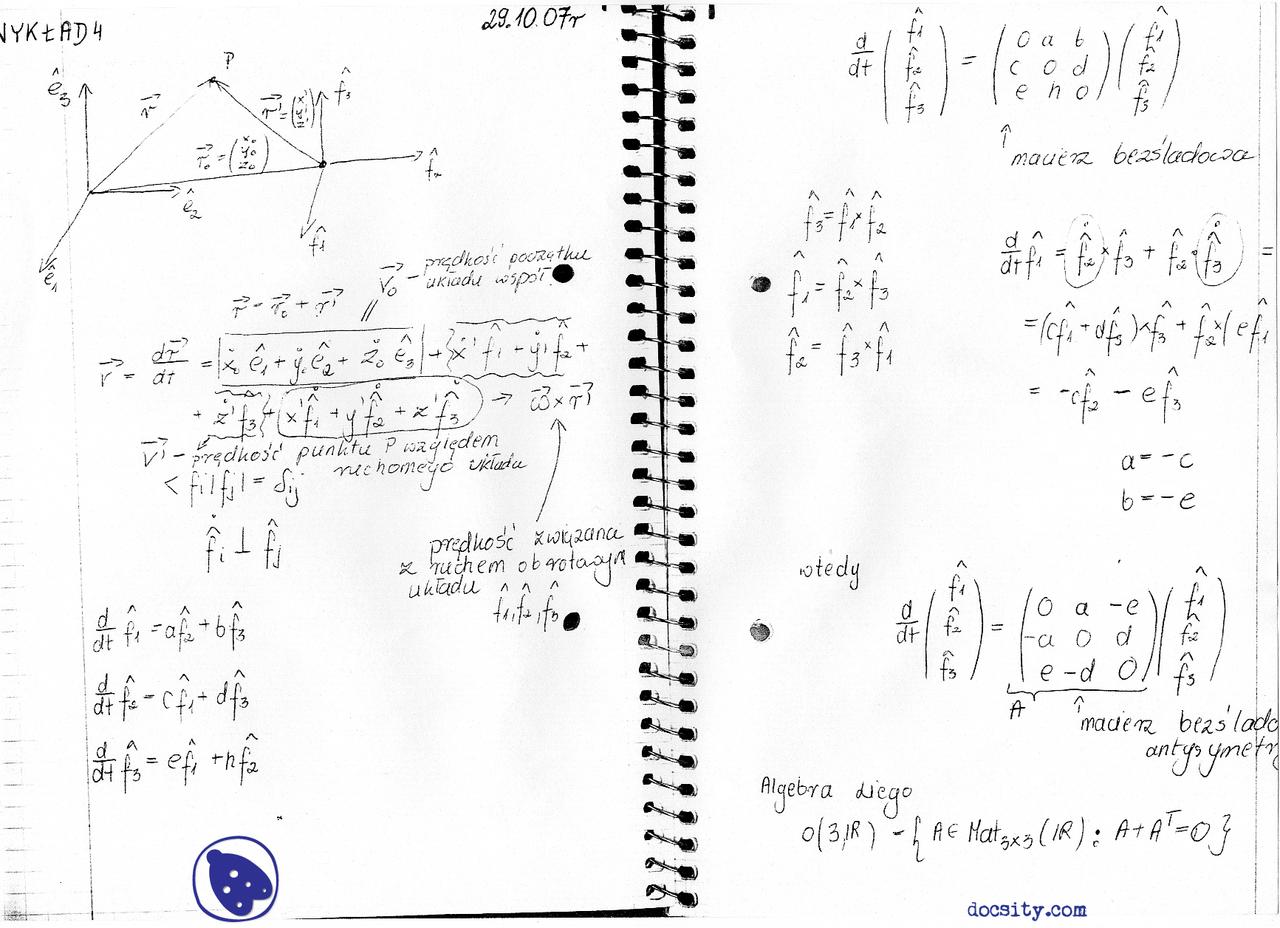 WYKŁAD 4
29.10.07r
P
ê₃
r⃗
r⃗' = (x' y' z')
f̂₃
r⃗₀ = (x₀ y₀ z₀)
f̂₂
ê₂
f̂₁
ê₁
v⃗₀ - prędkość początku
układu współ.
r⃗ = r⃗₀ + r⃗'
v⃗ = dr⃗/dt = |ẋ₀ ê₁ + ẏ₀ ê₂ + ż₀ ê₃| + {ẋ' f̂₁ + ẏ' f̂₂ +
+ ż' f̂₃} + (x' f̂̇₁ + y' f̂̇₂ + z' f̂̇₃) → ω⃗ × r⃗'
v⃗' - prędkość punktu P względem
ruchomego układu
< fi | fj | = δij
f̂̇i ⊥ f̂j
prędkość związana
z ruchem obrotowym
układu
f̂₁, f̂₂, f̂₃
d/dt f̂₁ = a f̂₂ + b f̂₃
d/dt f̂₂ = c f̂₁ + d f̂₃
d/dt f̂₃ = e f̂₁ + h f̂₂
d/dt (f̂₁ f̂₂ f̂₃) = (0 a b; c 0 d; e h 0) (f̂₁ f̂₂ f̂₃)
macierz bezśladowa
f̂₃ = f̂₁ × f̂₂
f̂₁ = f̂₂ × f̂₃
f̂₂ = f̂₃ × f̂₁
d/dt f̂₁ = f̂̇₂ × f̂₃ + f̂₂ × f̂̇₃ =
= (c f̂₁ + d f̂₃) × f̂₃ + f̂₂ × (e f̂₁
= -c f̂₂ - e f̂₃
a = -c
b = -e
wtedy
d/dt (f̂₁ f̂₂ f̂₃) = (0 a -e; -a 0 d; e -d 0) (f̂₁ f̂₂ f̂₃)
A
macierz bezślado
antysymetr
Algebra Liego
O(3,ℝ) - { A ∈ Mat₃ₓ₃ (ℝ) : A + Aᵀ = 0 }
docsity.com